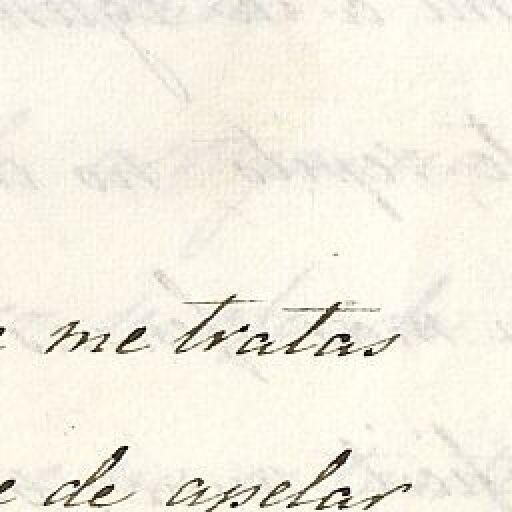 me tratas
de apelar